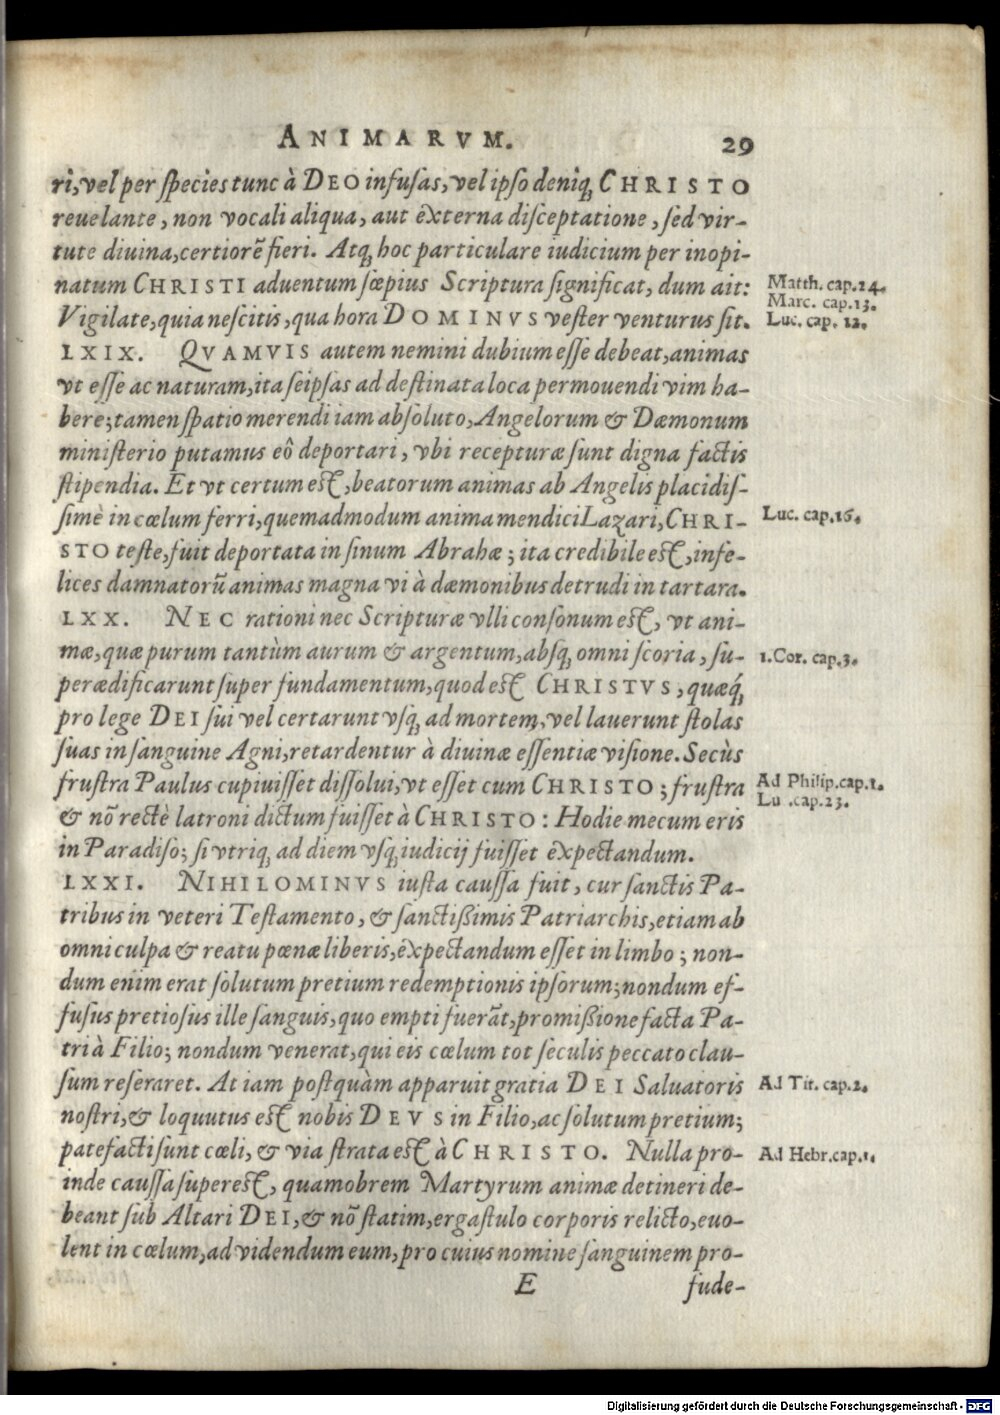 ANIMARVM. 29
ri, vel per species tunc à DEO infusas, vel ipso deniq́; CHRISTO
reuelante, non vocali aliqua, aut externa disceptatione, sed vir-
tute diuina, certiorẽ fieri. Atq́; hoc particulare iudicium per inopi-
natum CHRISTI aduentum sœpius Scriptura significat, dum ait: Matth. cap. 24.
Marc. cap. 13.
Vigilate, quia nescitis, qua hora DOMINVS vester venturus sit. Luc. cap. 12.
LXIX. QVAMVIS autem nemini dubium esse debeat, animas
vt esse ac naturam, ita seipsas ad destinata loca permouendi vim ha-
bere; tamen spatio merendi iam absoluto, Angelorum & Dæmonum
ministerio putamus eô deportari, vbi recepturæ sunt digna factis
stipendia. Et vt certum est, beatorum animas ab Angelis placidis-
simè in cœlum ferri, quemadmodum anima mendici Lazari, CHRI- Luc. cap. 16.
STO teste, fuit deportata in sinum Abrahæ; ita credibile est, infe-
lices damnatorũ animas magna vi à dæmonibus detrudi in tartara.
LXX. NEC rationi nec Scripturæ vlli consonum est, vt ani-
mæ, quæ purum tantùm aurum & argentum, absq́; omni scoria, su- 1. Cor. cap. 3.
perædificarunt super fundamentum, quod est CHRISTVS, quæq́;
pro lege DEI sui vel certarunt vsq́; ad mortem, vel lauerunt stolas
suas in sanguine Agni, retardentur à diuinæ essentiæ visione. Secùs
frustra Paulus cupiuisset dissolui, vt esset cum CHRISTO; frustra Ad Philip. cap. 1.
& nõ rectè latroni dictum fuisset à CHRISTO: Hodie mecum eris Lu .cap. 23.
in Paradiso; si vtriq́; ad diem vsq́; iudicij fuisset expectandum.
LXXI. NIHILOMINVS iusta caussa fuit, cur sanctis Pa-
tribus in veteri Testamento, & sanctißimis Patriarchis, etiam ab
omni culpa & reatu pœnæ liberis, expectandum esset in limbo; non-
dum enim erat solutum pretium redemptionis ipsorum; nondum ef-
fusus pretiosus ille sanguis, quo empti fuerãt, promißione facta Pa-
tri à Filio; nondum venerat, qui eis cœlum tot seculis peccato clau-
sum reseraret. At iam postquàm apparuit gratia DEI Saluatoris Ad Tit. cap. 2.
nostri, & loquutus est nobis DEVS in Filio, ac solutum pretium;
patefacti sunt cœli, & via strata est à CHRISTO. Nulla pro- Ad Hebr. cap. 1.
inde caussa superest, quamobrem Martyrum animæ detineri de-
beant sub Altari DEI, & nõ statim, ergastulo corporis relicto, euo-
lent in cœlum, ad videndum eum, pro cuius nomine sanguinem pro-
E fude-
Digitalisierung gefördert durch die Deutsche Forschungsgemeinschaft - DFG